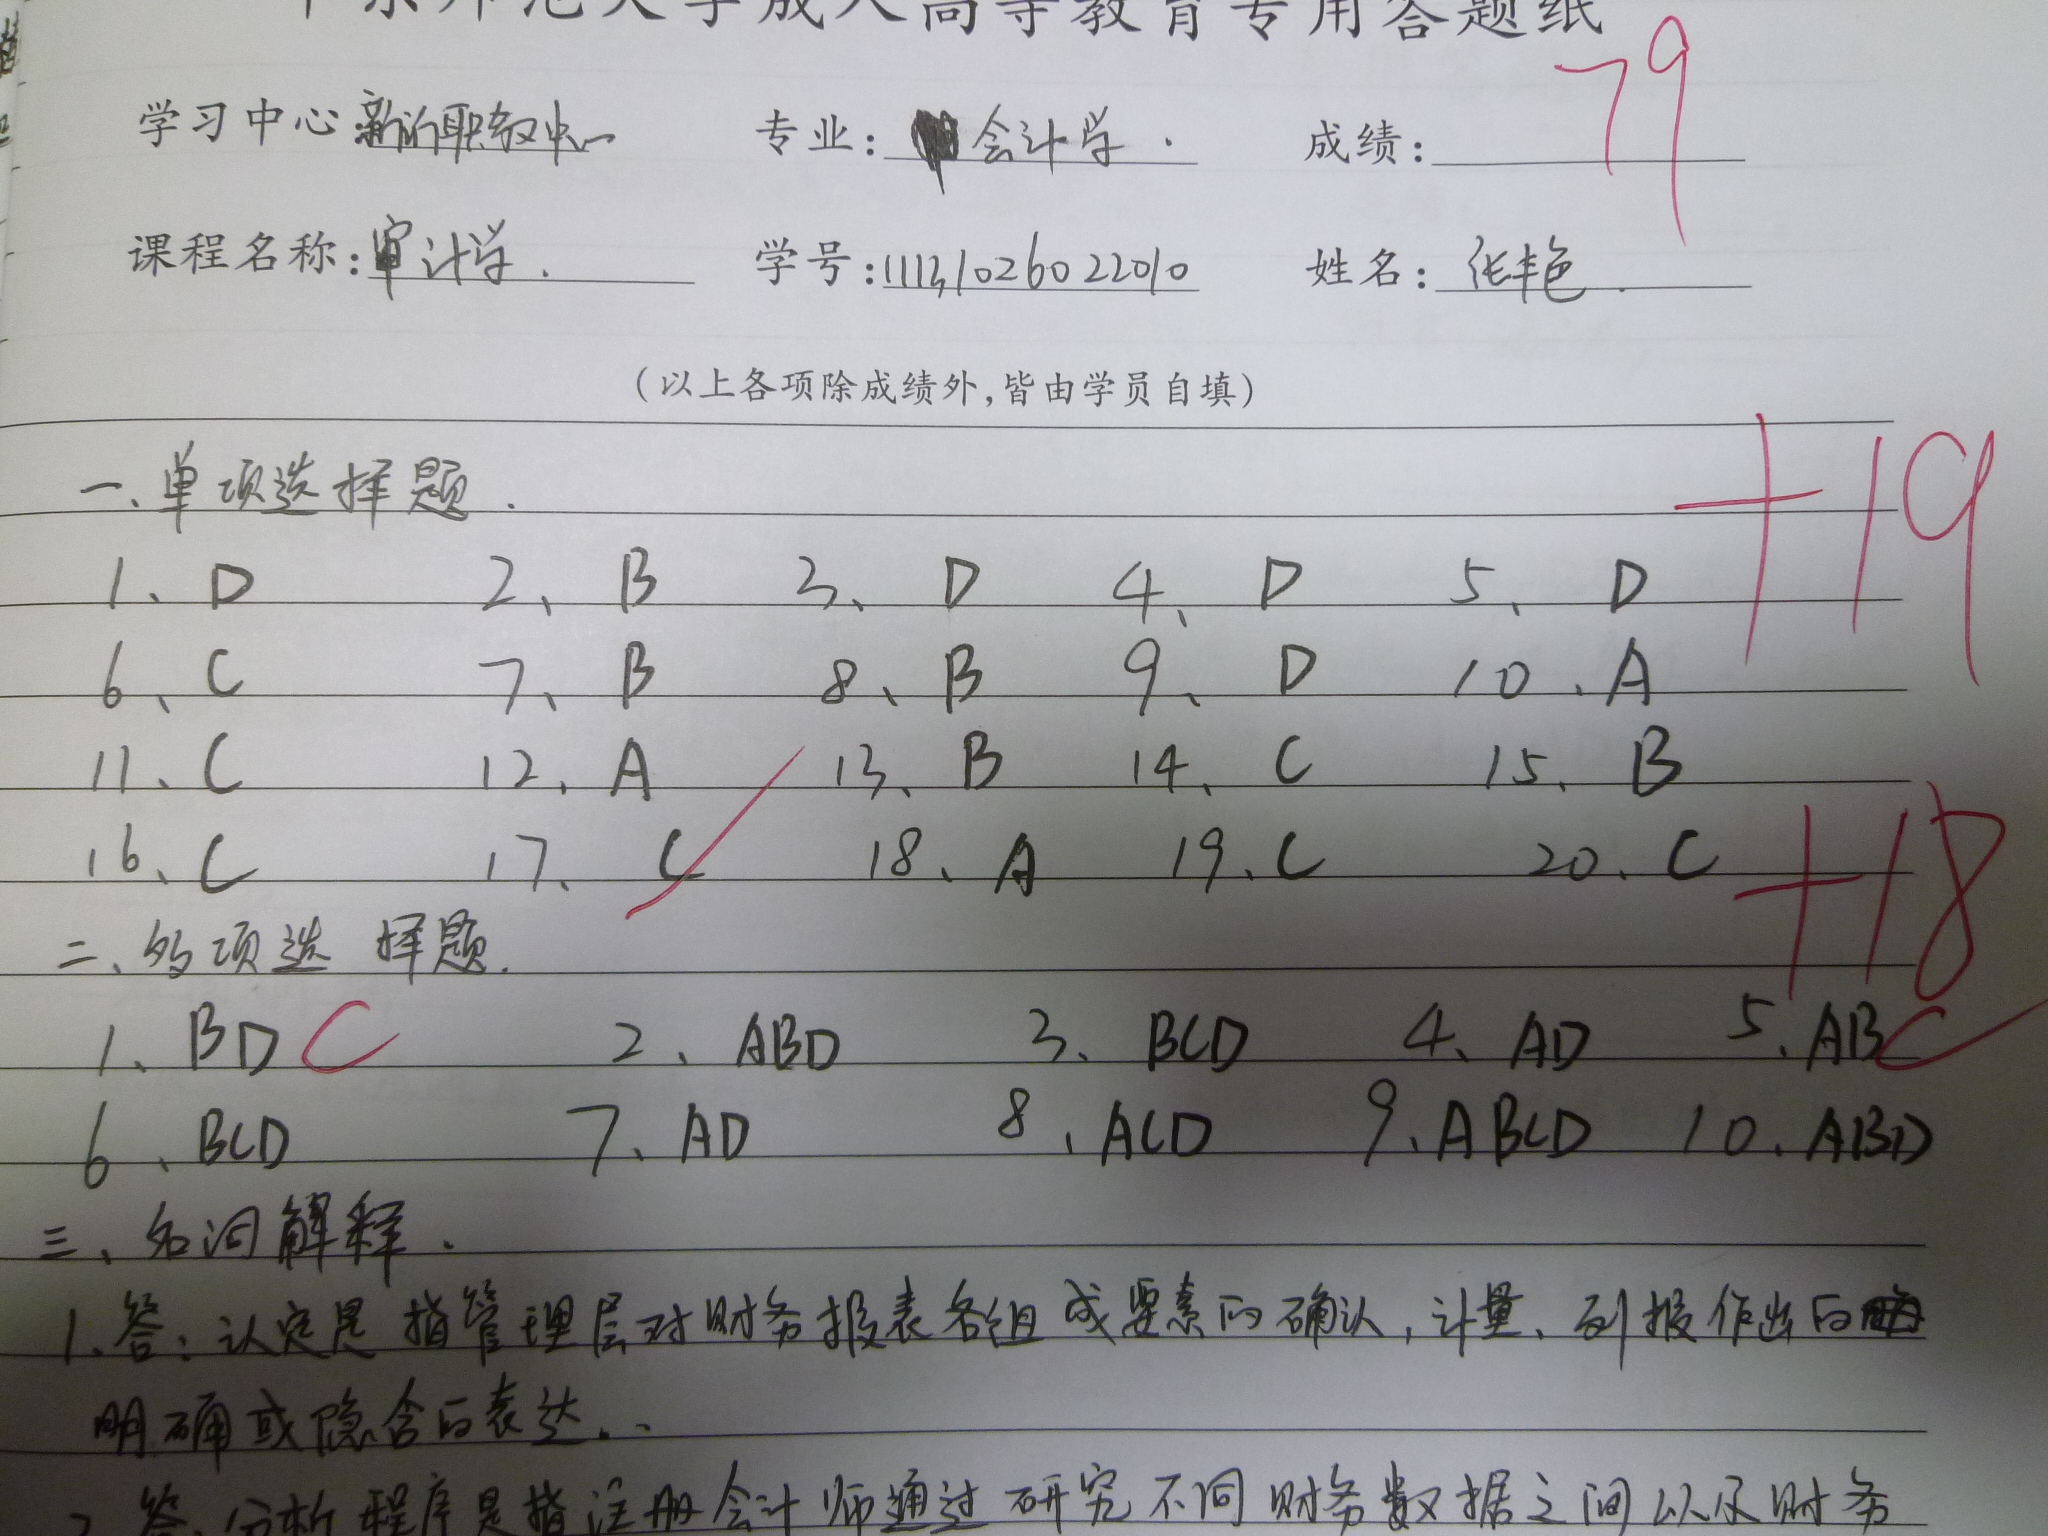 京师范大学成人高等教育专用答题纸
学习中心 新沂职教中心 专业: 会计学. 成绩: 79
课程名称: 审计学. 学号: 11131026022010 姓名: 张丰色.
(以上各项除成绩外,皆由学员自填)
一、单项选择题. +19
1、D 2、B 3、D 4、D 5、D
6、C 7、B 8、B 9、D 10、A
11、C 12、A 13、B 14、C 15、B
16、C 17、C 18、A 19、C 20、C
二、多项选择题. +18
1、BD C 2、ABD 3、BCD 4、AD 5、AB C
6、BCD 7、AD 8、ACD 9、ABCD 10、ABD
三、名词解释.
1、答:认定是指管理层对财务报表各组成要素的确认,计量、列报作出的
明确或隐含的表达.
2、答:分析程序是指注册会计师通过研究不同财务数据之间以及财务